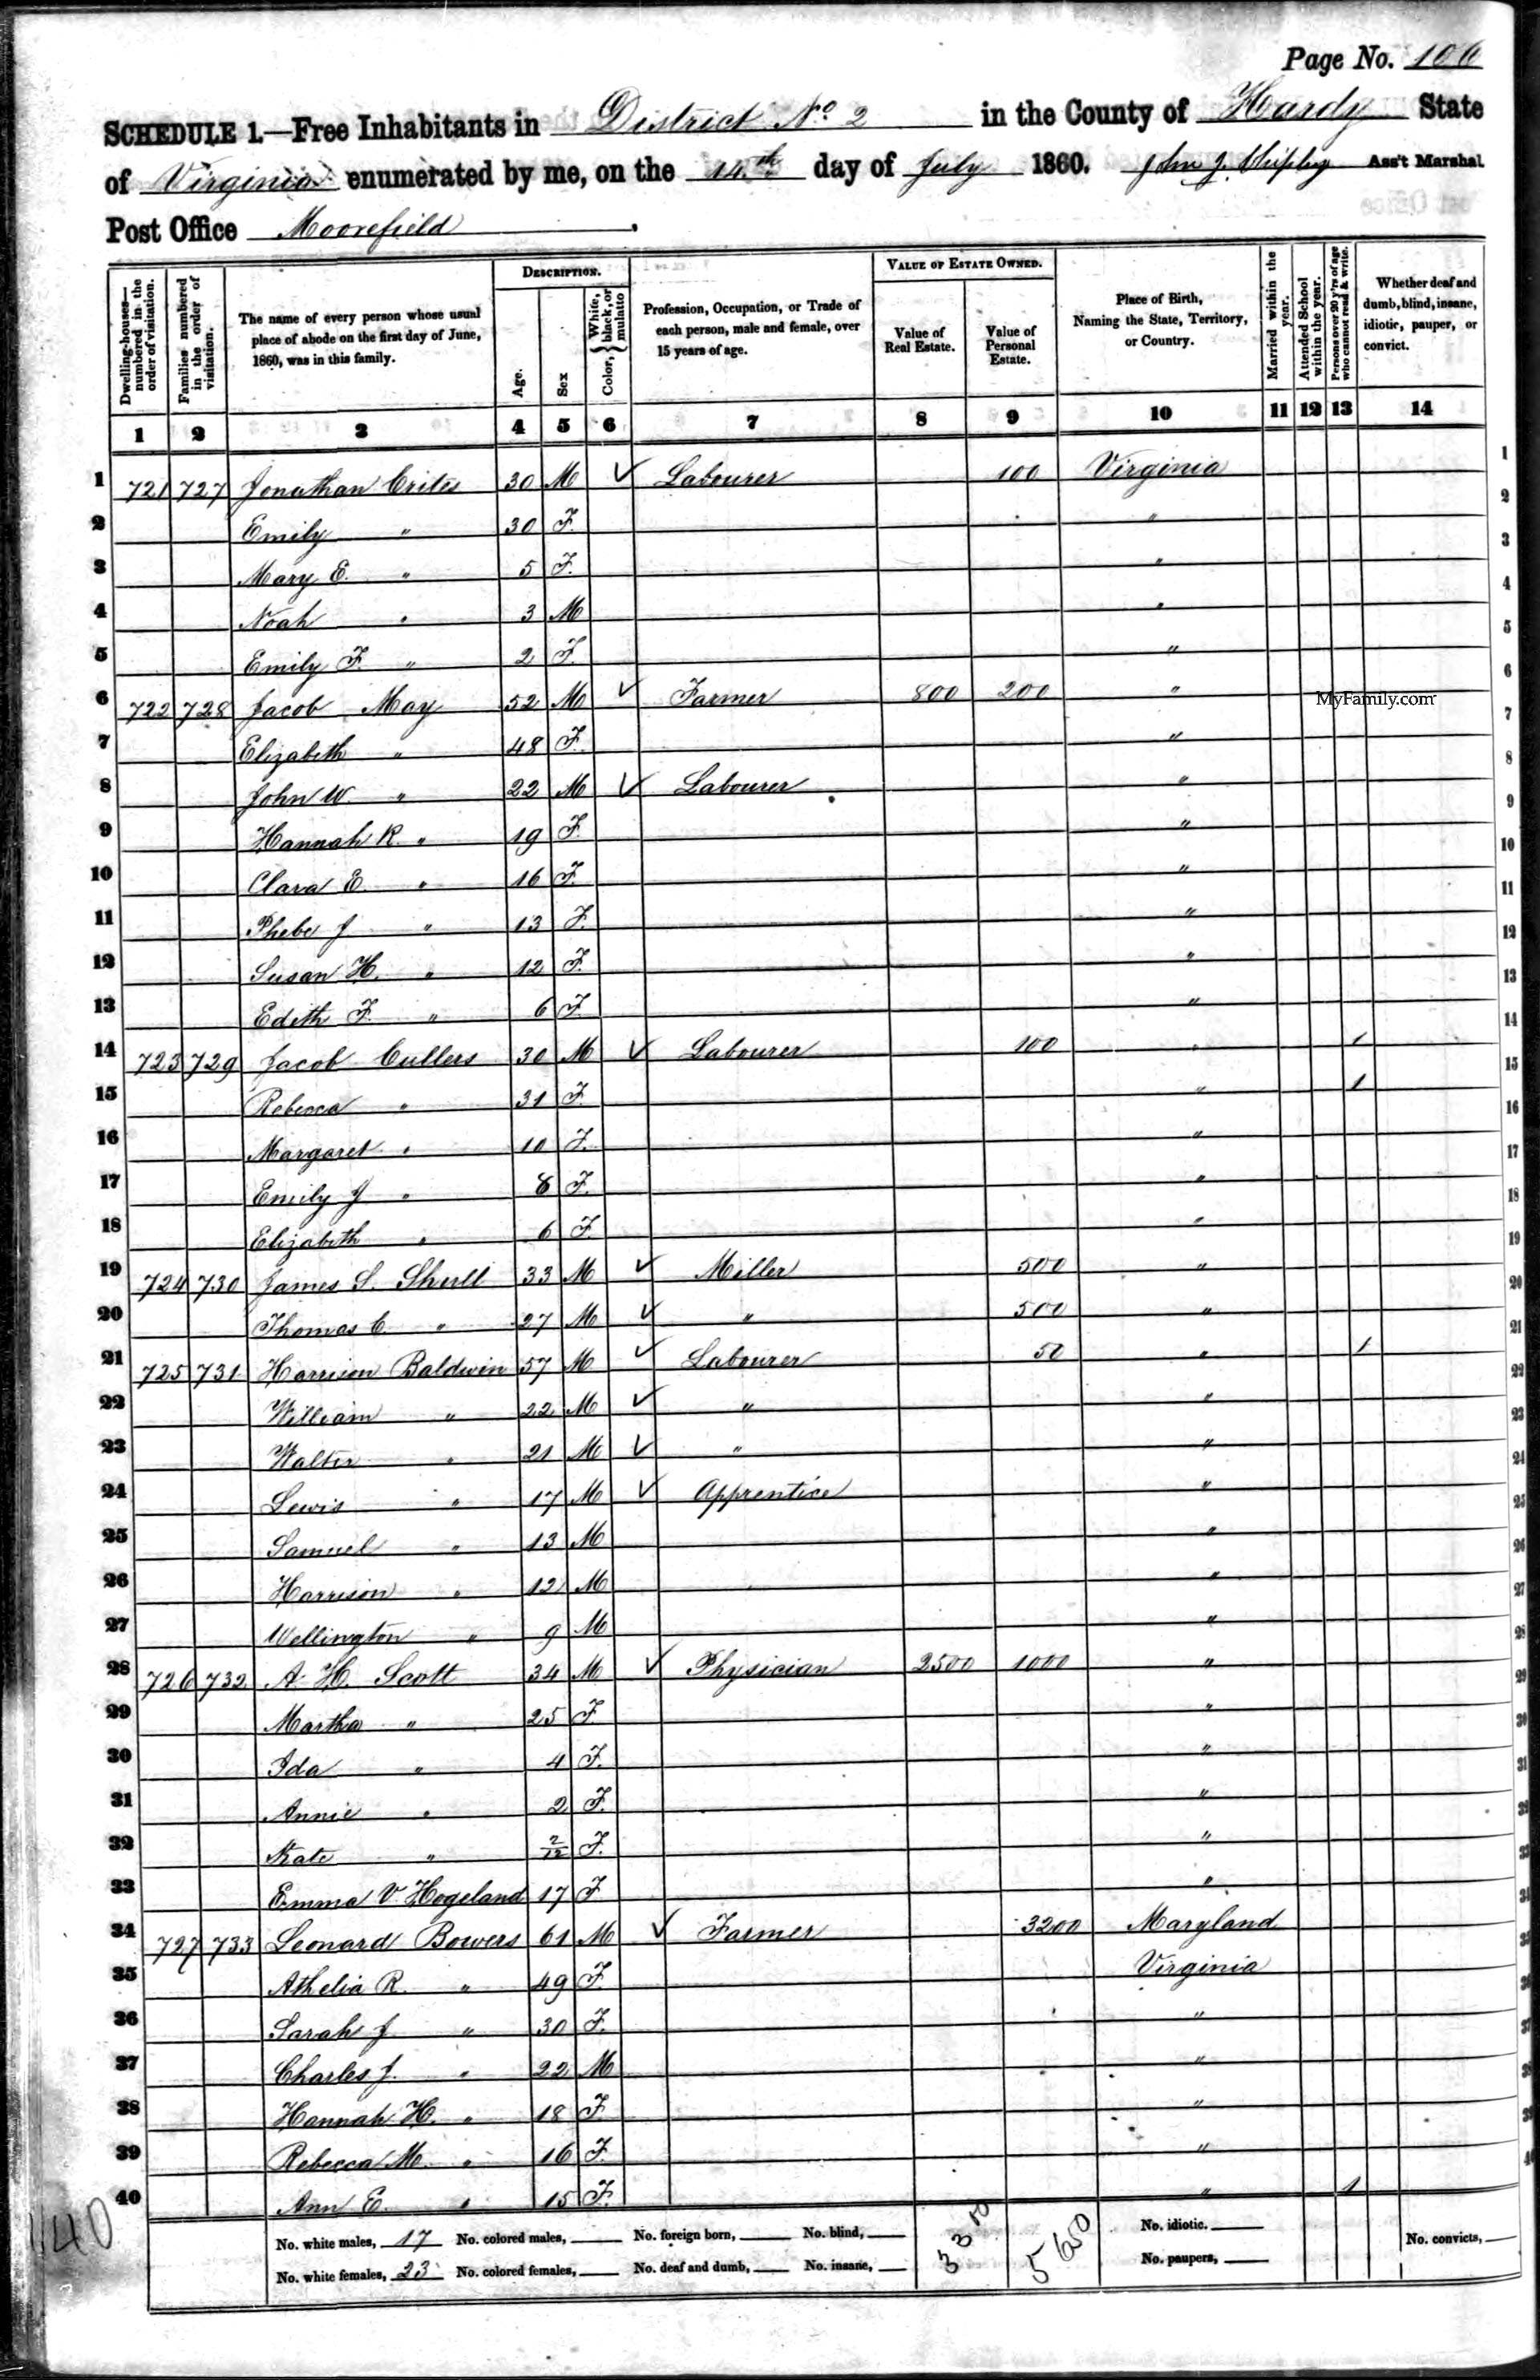 Page No. 106
SCHEDULE 1.—Free Inhabitants in District No 2 in the County of Hardy State
of Virginia enumerated by me, on the 14th day of July 1860. John J. Chipley Ass't Marshal
Post Office Moorefield
Dwelling-houses—numbered in the order of visitation. Families numbered in the order of visitation. The name of every person whose usual place of abode on the first day of June, 1860, was in this family. DESCRIPTION. Age. Sex Color, { White, black, or mulatto Profession, Occupation, or Trade of each person, male and female, over 15 years of age. VALUE OF ESTATE OWNED. Value of Real Estate. Value of Personal Estate. Place of Birth, Naming the State, Territory, or Country. Married within the year. Attended School within the year. Persons over 20 y'rs of age who cannot read & write. Whether deaf and dumb, blind, insane, idiotic, pauper, or convict.
1 2 3 4 5 6 7 8 9 10 11 12 13 14
1 721 727 Jonathan Crites 30 M ✓ Labourer 100 Virginia 1
2 Emily " 30 F. " 2
3 Mary E. " 5 F. " 3
4 Noah " 3 M " 4
5 Emily F. " 2 F. " 5
6 722 728 Jacob May 52 M ✓ Farmer 800 200 " 6
MyFamily.com
7 Elizabeth " 48 F. " 7
8 John W. " 22 M ✓ Labourer " 8
9 Hannah R. " 19 F. " 9
10 Clara E. " 16 F. " 10
11 Phebe J " 13 F. " 11
12 Susan H. " 12 F. " 12
13 Edith F. " 6 F. " 13
14 723 729 Jacob Cullers 30 M ✓ Labourer 100 " 1 14
15 Rebecca " 31 F. " 1 15
16 Margaret " 10 F. " 16
17 Emily J " 8 F. " 17
18 Elizabeth " 6 F. " 18
19 724 730 James S. Shull 33 M ✓ Miller 500 " 19
20 Thomas C. " 27 M ✓ " 500 " 20
21 725 731 Harrison Baldwin 57 M ✓ Labourer 50 " 1 21
22 William " 22 M ✓ " " 22
23 Walter " 21 M ✓ " " 23
24 Lewis " 17 M ✓ Apprentice " 24
25 Samuel " 13 M " 25
26 Harrison " 12 M " 26
27 Wellington " 9 M " 27
28 726 732 A. H. Scott 34 M ✓ Physician 2500 1000 " 28
29 Martha " 25 F. " 29
30 Ida " 4 F. " 30
31 Annie " 2 F. " 31
32 Kate " 2/12 F. "
33 Emma V. Hogeland 17 F "
34 727 733 Leonard Bowers 61 M ✓ Farmer 3200 Maryland
35 Athelia R. " 49 F. Virginia
36 Sarah J " 30 F. "
37 Charles J. " 22 M "
38 Hannah H. " 18 F "
39 Rebecca M. " 16 F. "
40 Ann E. " 15 F. " 1
No. white males, 17 No. colored males, No. foreign born, No. blind, 3300 5650 No. idiotic. No. convicts,
No. white females, 23 No. colored females, No. deaf and dumb, No. insane, No. paupers,
140